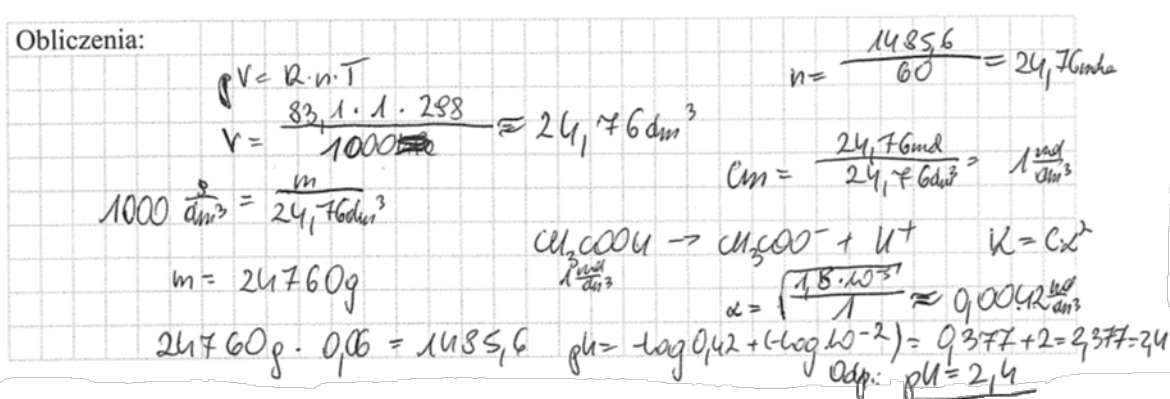 Obliczenia:
pV = R·n·T
V = 83,1·1·298 / 1000 ≈ 24,76 dm³
1000 g/dm³ = m / 24,76 dm³
m = 24760g
24760g · 0,06 = 1485,6
n = 1485,6 / 60 = 24,76 mola
Cm = 24,76mol / 24,76dm³ = 1 mol/dm³
CH₃COOH → CH₃COO⁻ + H⁺ K = Cα²
1 mol/dm³
α = √(1,8·10⁻⁵ / 1) ≈ 0,0042 mol/dm³
pH = -log 0,42 + (-log 10⁻²) = 0,377 + 2 = 2,377 = 2,4
Odp.: pH = 2,4